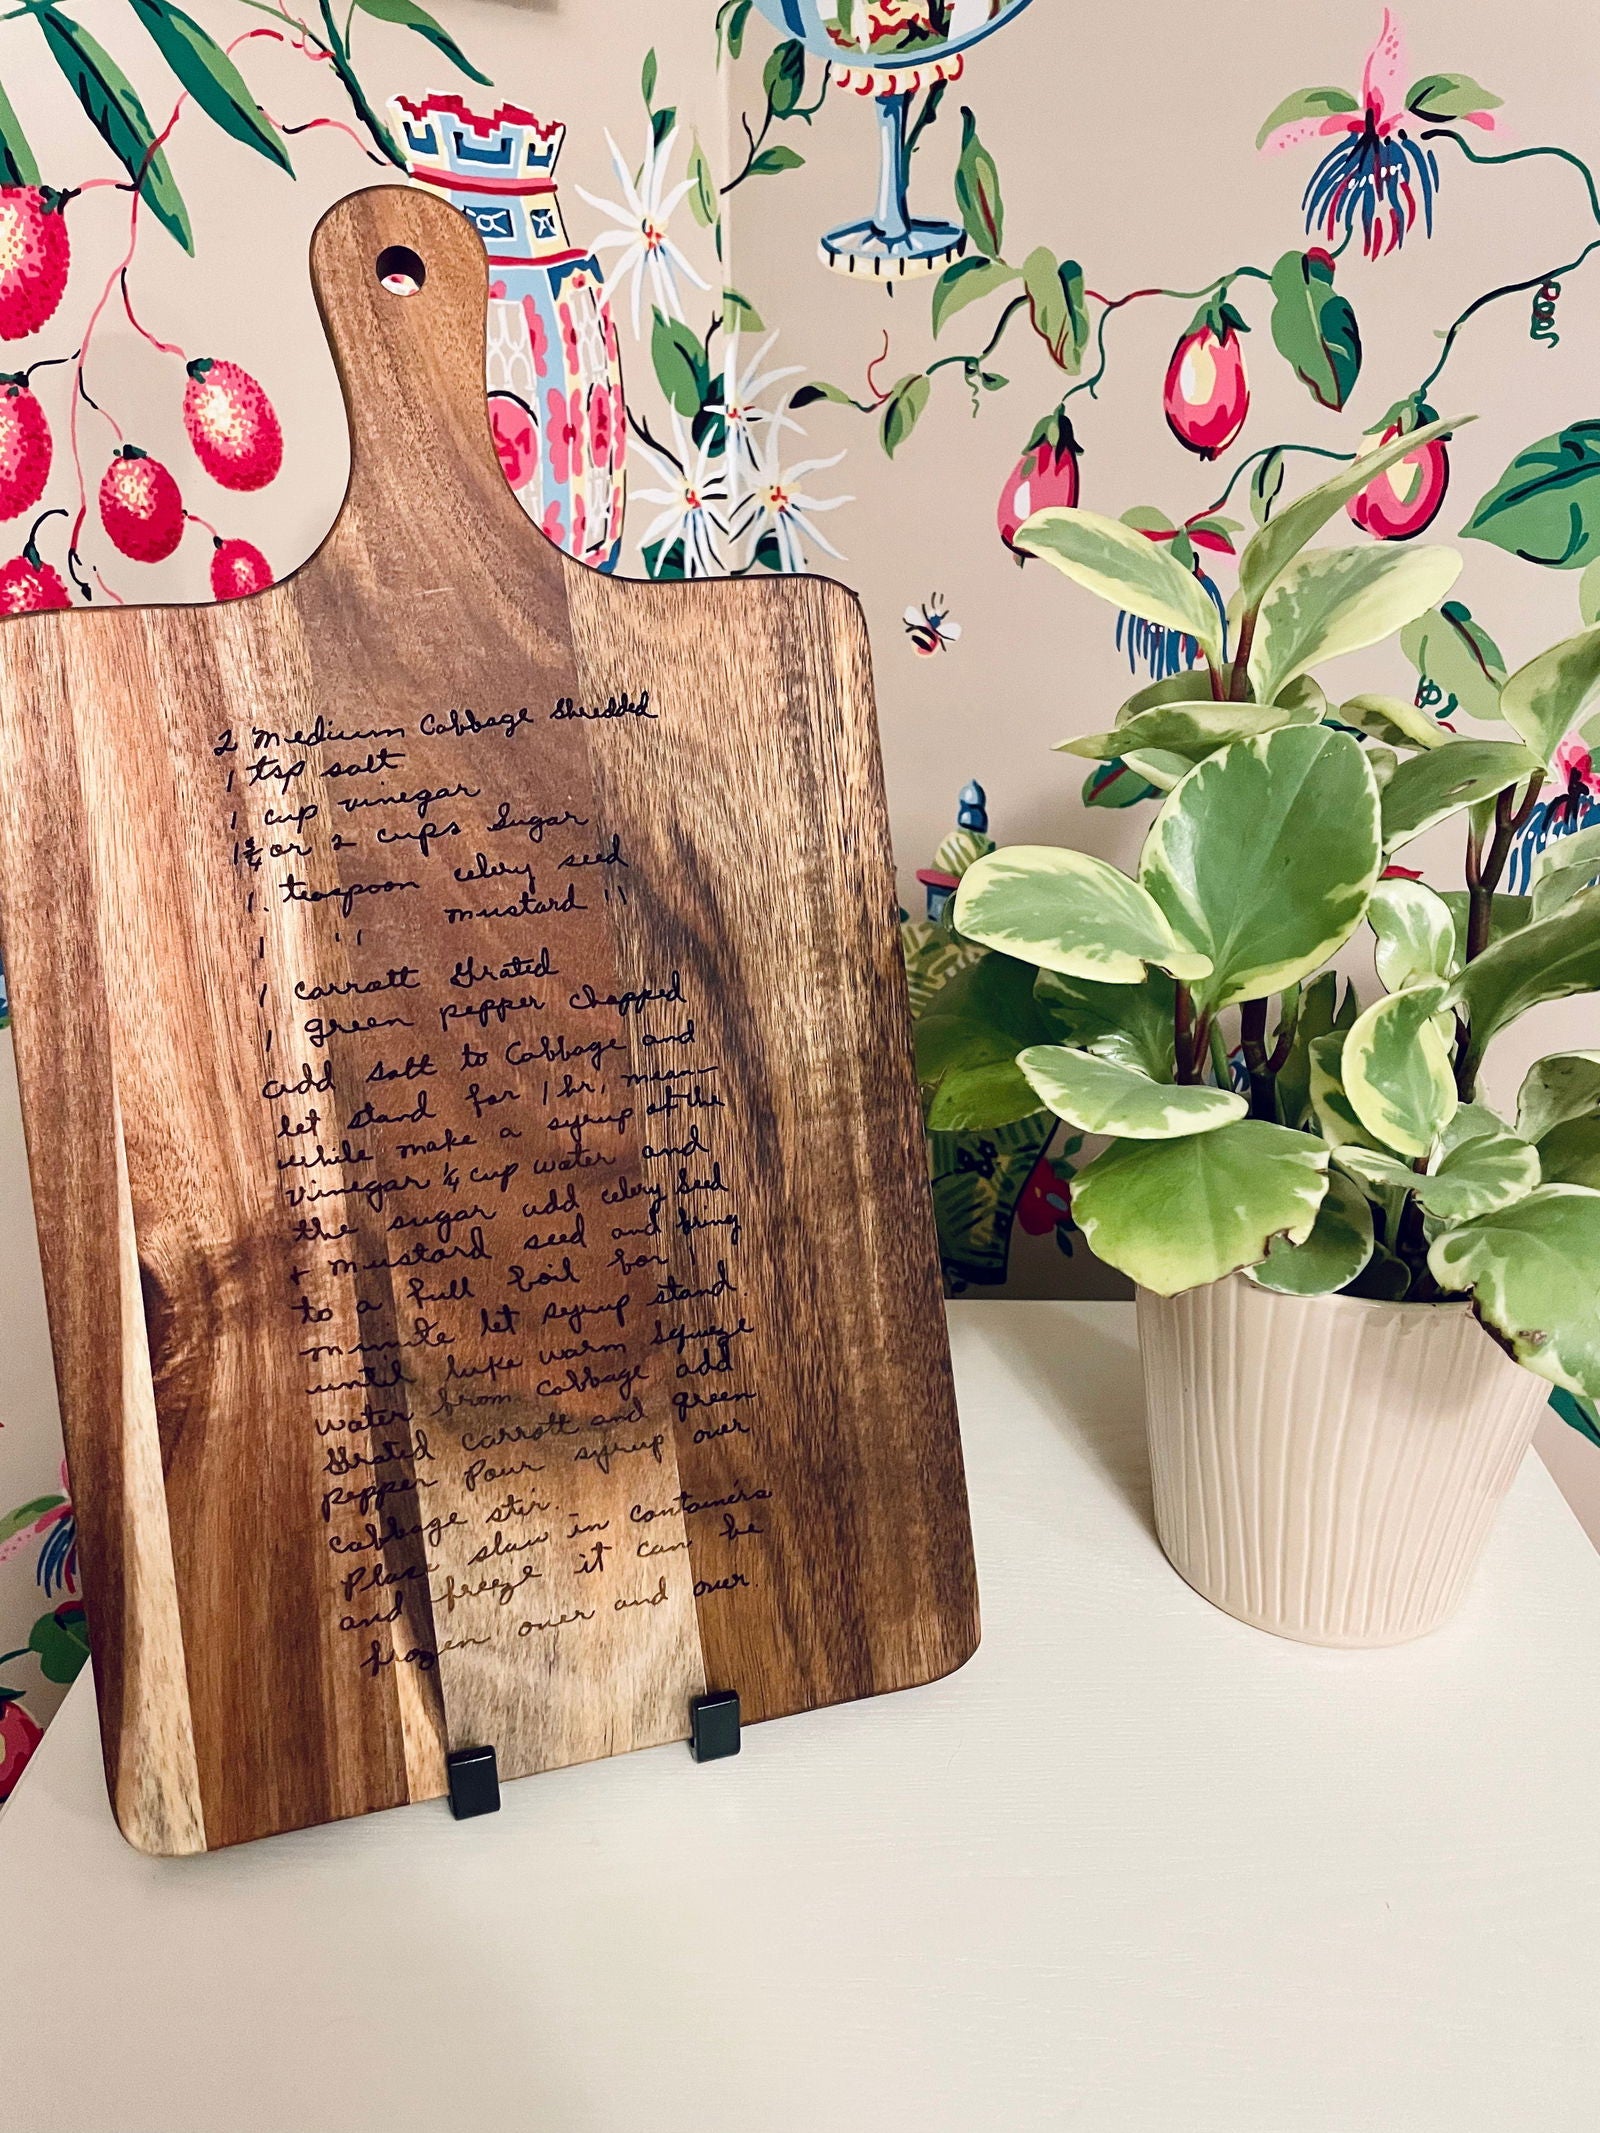 2 Medium Cabbage Shredded
1 tsp salt
1 cup vinegar
1 3/4 or 2 cups Sugar
1. teaspoon celery seed
1 '' mustard ''
1 carrott Grated
1 green pepper chopped
add salt to Cabbage and
let stand for 1 hr, mean-
while make a syrup of the
vinegar 1/4 cup water and
the sugar add celery seed
+ mustard seed and bring
to a full boil for 1
minute let syrup stand
until luke warm squeeze
water from cabbage add
Grated carrott and green
pepper Pour syrup over
cabbage stir.
Place slaw in containers
and freeze it can be
frozen over and over.